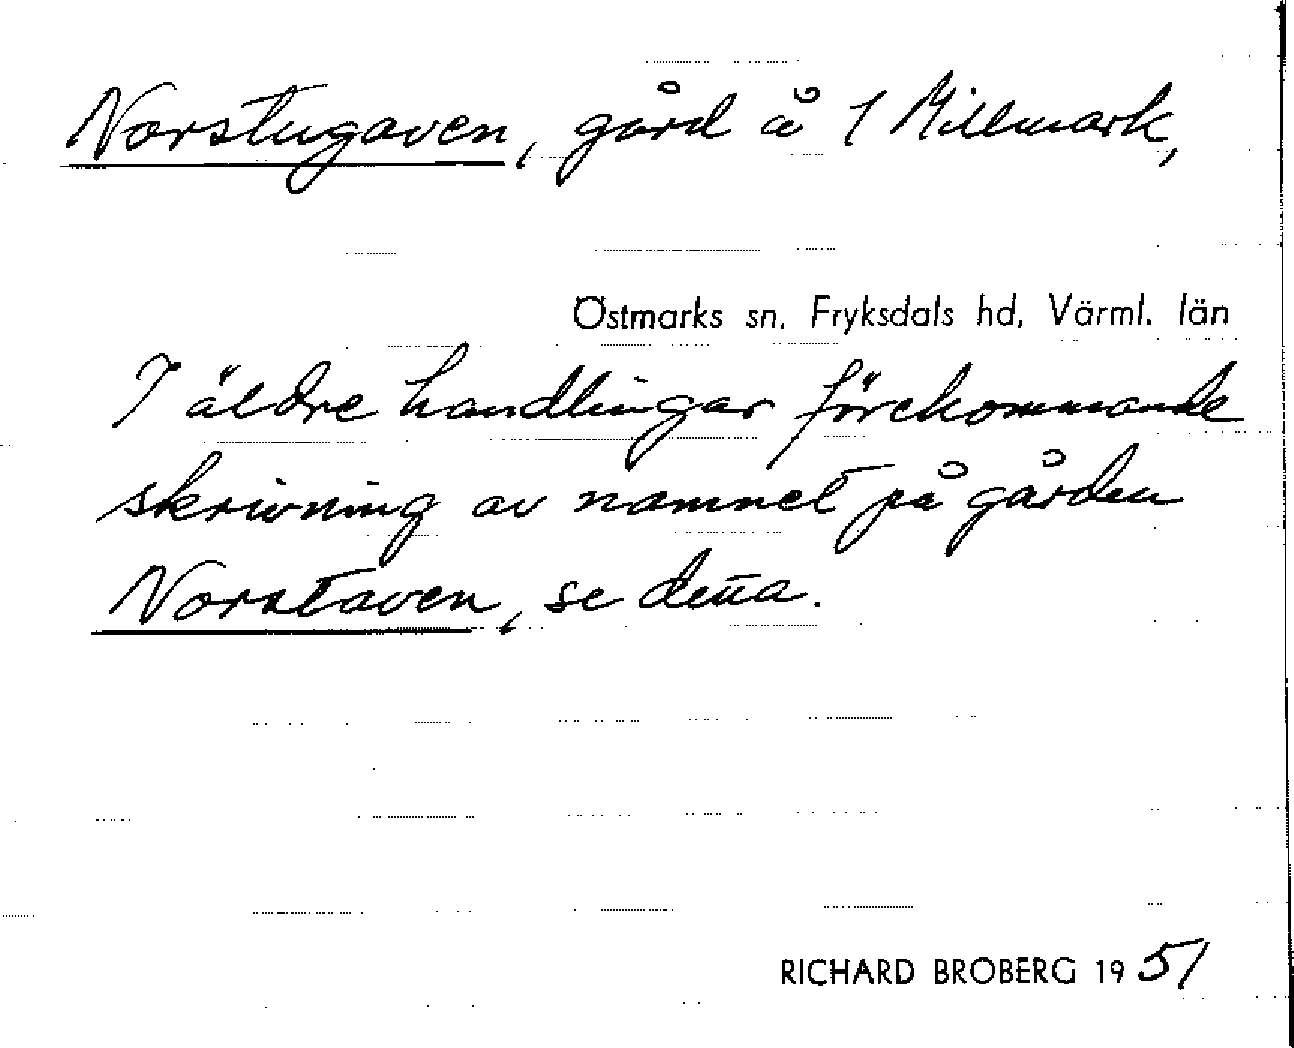 Norstugaven, gård å 1 Millmark,
Östmarks sn. Fryksdals hd. Värml. län
I äldre handlingar förekommande
skrivning av namnet på gården
Norstaven, se detta.
RICHARD BROBERG 1951